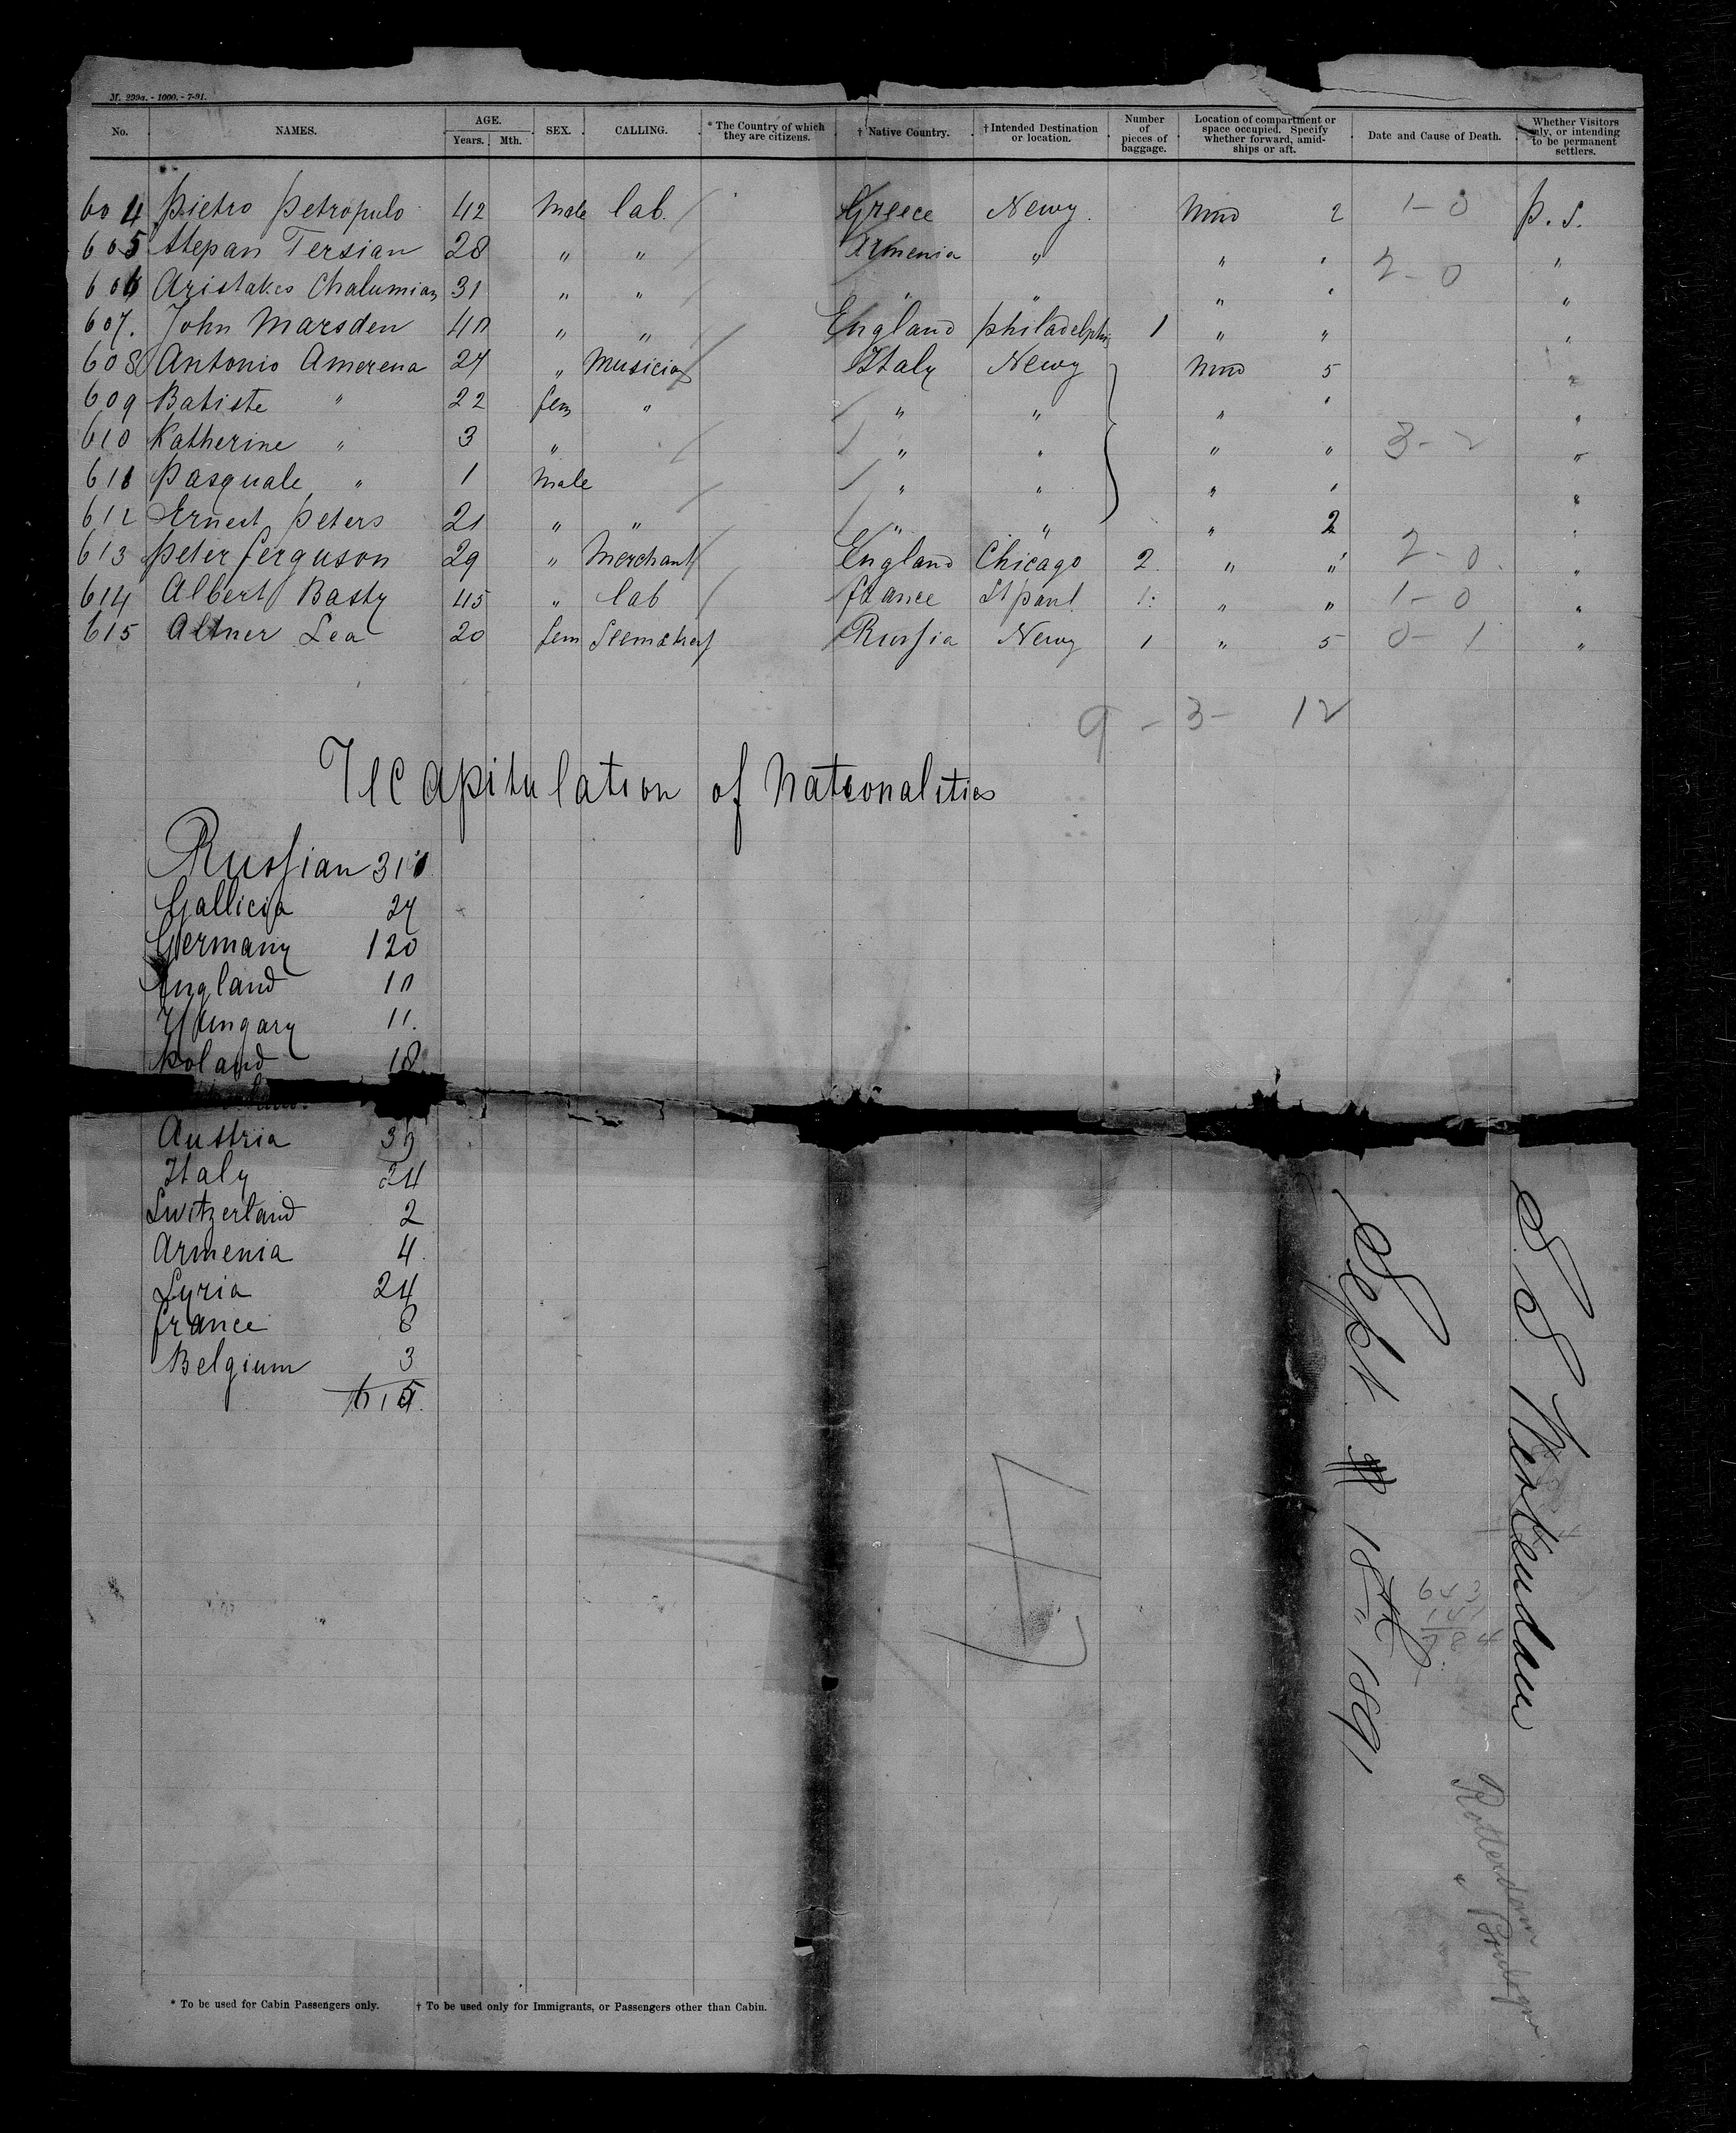 M. 299a. - 1000. - 7-91.
No. NAMES. AGE. Years. Mth. SEX. CALLING. * The Country of which they are citizens. † Native Country. † Intended Destination or location. Number of pieces of baggage. Location of compartment or space occupied. Specify whether forward, amidships or aft. Date and Cause of Death. Whether Visitors only, or intending to be permanent settlers.
604 Pietro Petropulo 42 Male lab. Greece Newy. 2 1-0 P. S.
605 Stepan Tersian 28 " " Armenia " " " "
606 Aristakes Chalumian 31 " " " " " " 2-0 "
607. John Marsden 40 " " England philadelphia 1 " " "
608 Antonio Amerena 27 " Musician Italy Newy 5 "
609 Batiste " 22 fem " " " " " "
610 Katherine " 3 " " " " " 3-2 "
611 Pasquale " 1 Male " " " " "
612 Ernest Peters 21 " " " " " 2 "
613 Peter ferguson 29 " Merchant England Chicago 2 " " 2-0 "
614 Albert Basty 45 " lab france St paul 1 " " 1-0 "
615 Altner Lea 20 fem Russia Newy 1 " 5 0-1 "
9 - 3 - 12
Recapitulation of Nationalities
Russian 310
Gallicia 27
Germany 120
England 10
Hungary 11.
Poland 18
Austria
Italy 24
Switzerland 2
Armenia 4
Syria 24
france 8
Belgium 3
615.
S. S. Werkendam
Sept 18th 1891
643
141
784
Rotterdam
47
* To be used for Cabin Passengers only. † To be used only for Immigrants, or Passengers other than Cabin.